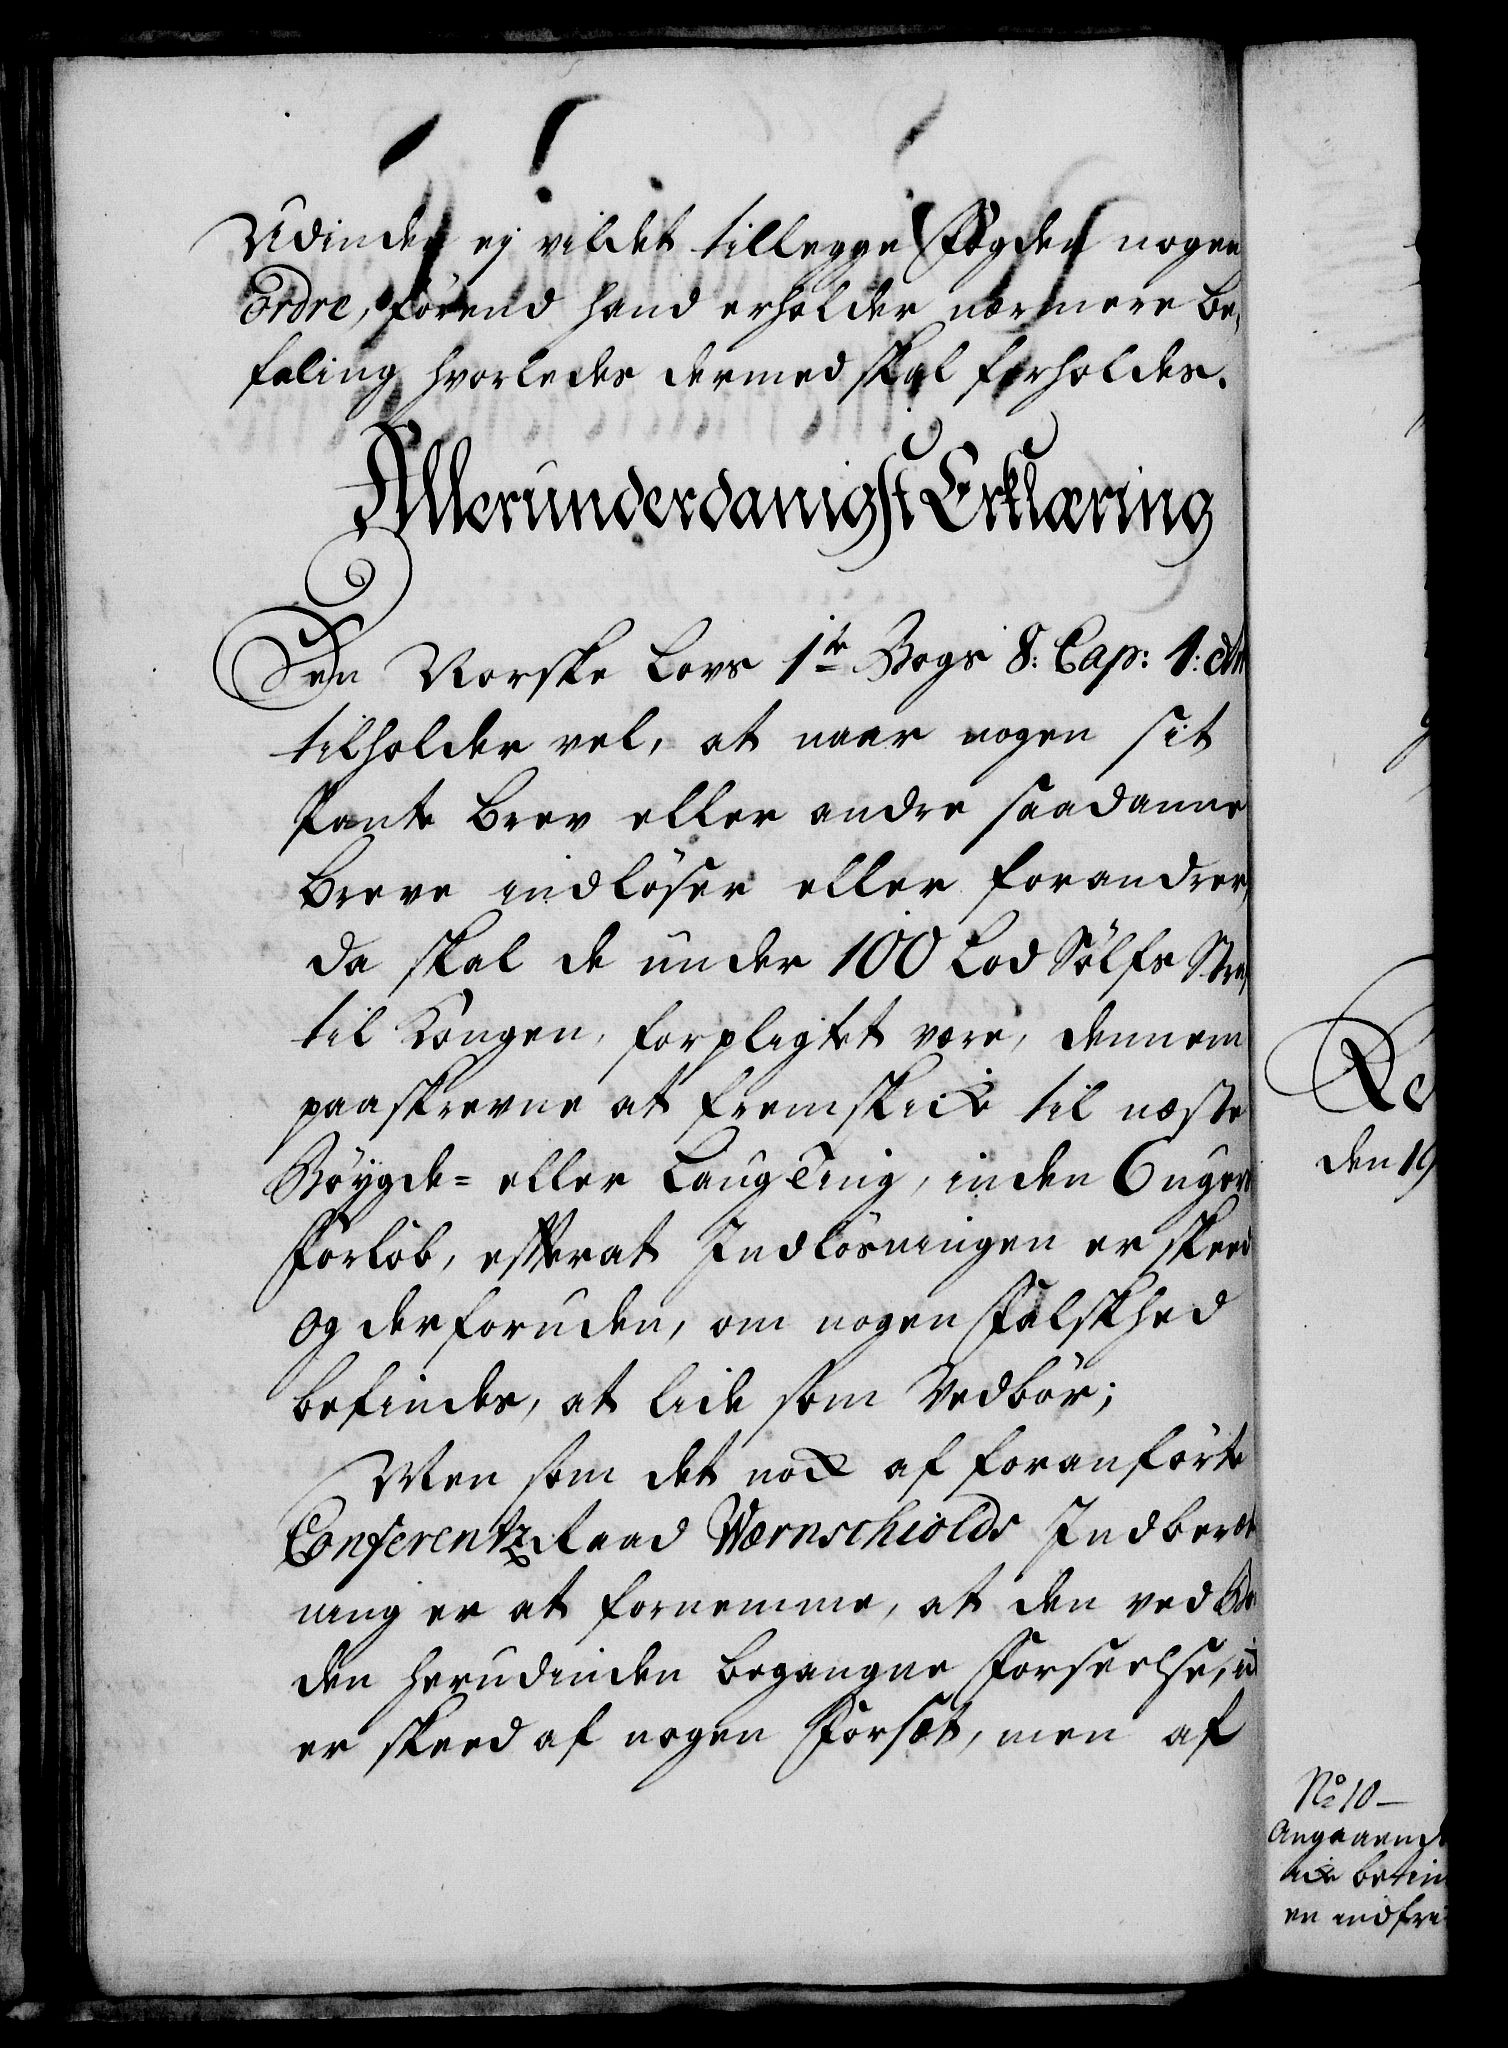 Udinden ej vildet tillegge Fogden nogen
Ordre, förend hand erholder nærmere be,
faling hvorledes dermed skal forholdes.
Allerunderdanigst Erklæring
Den Norske Lovs 1te Bogs 8: Cap: 1:
tilholder vel, at naar nogen sit
Pante Brev eller andre saadanne
Breve indlöser eller forandrer,
da skal de under 100 Lod Sölfs
til Kongen, forpligtet være, dennem
paaskrevne at fremskicke til næste
Böygde= eller LaugTing, inden 6 ugers
Forlöb, efterat Indlösningen er skeed
og derforuden, om nogen Falskhed
befindes, at lide som Vedbör;
Men som det nock af foranförte
ConferentzRaad Wærnschiolds Indberet
ning er at fornemme, at den ved
den herudinden begangne Forseelse,
er skeed af nogen Forsæt, men af
den 19
No 10
Angaaende
icke
en indfri